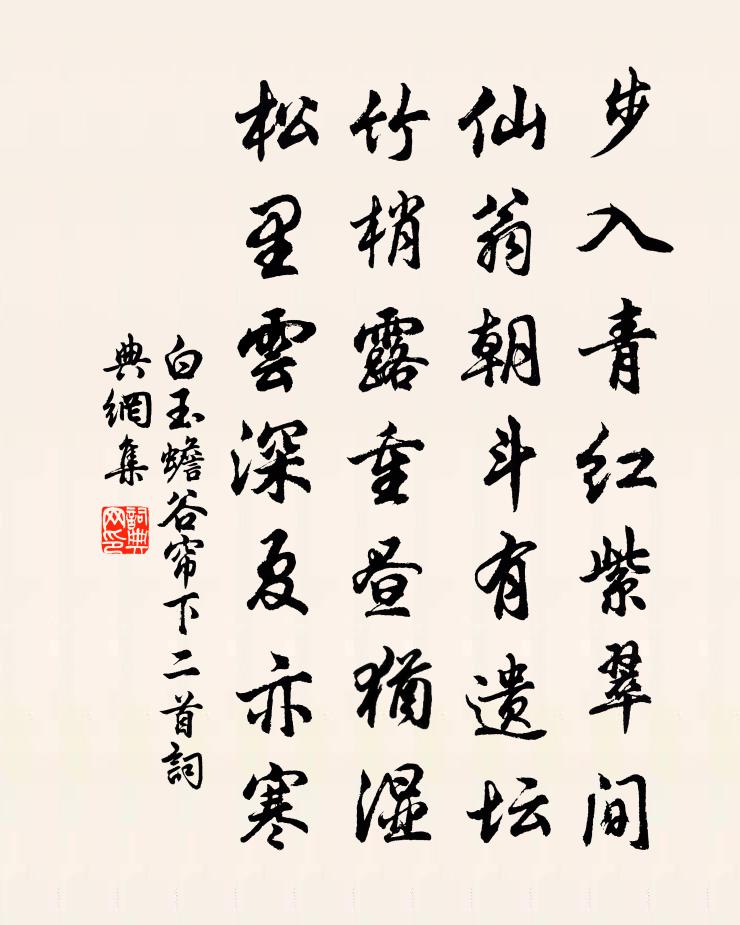 步入青红紫翠间
仙翁朝斗有遗坛
竹梢露重昼犹湿
松里雲深夏亦寒
白玉蟾谷帘下二首詞
典網集
詞典网印